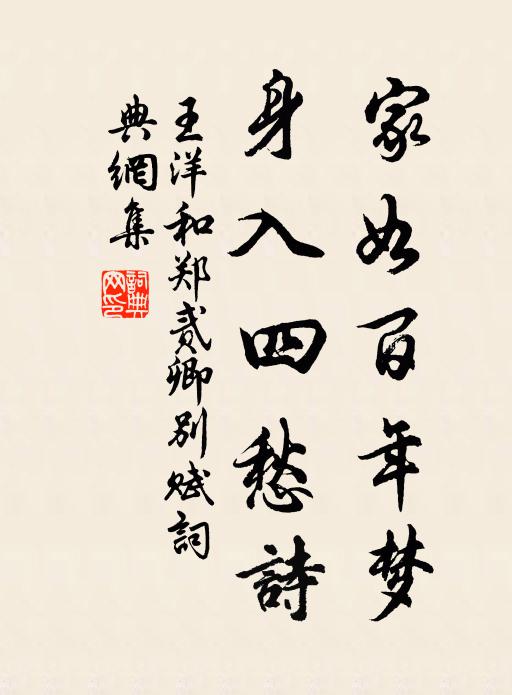 家如百年梦
身入四愁詩
王洋和郑贰卿别赋詞
典網集
詞典
网印